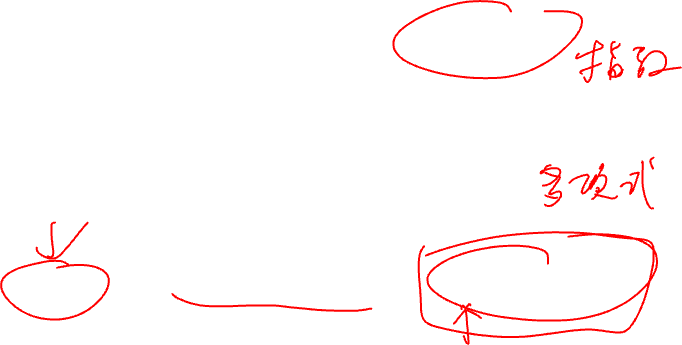 指数
多项式